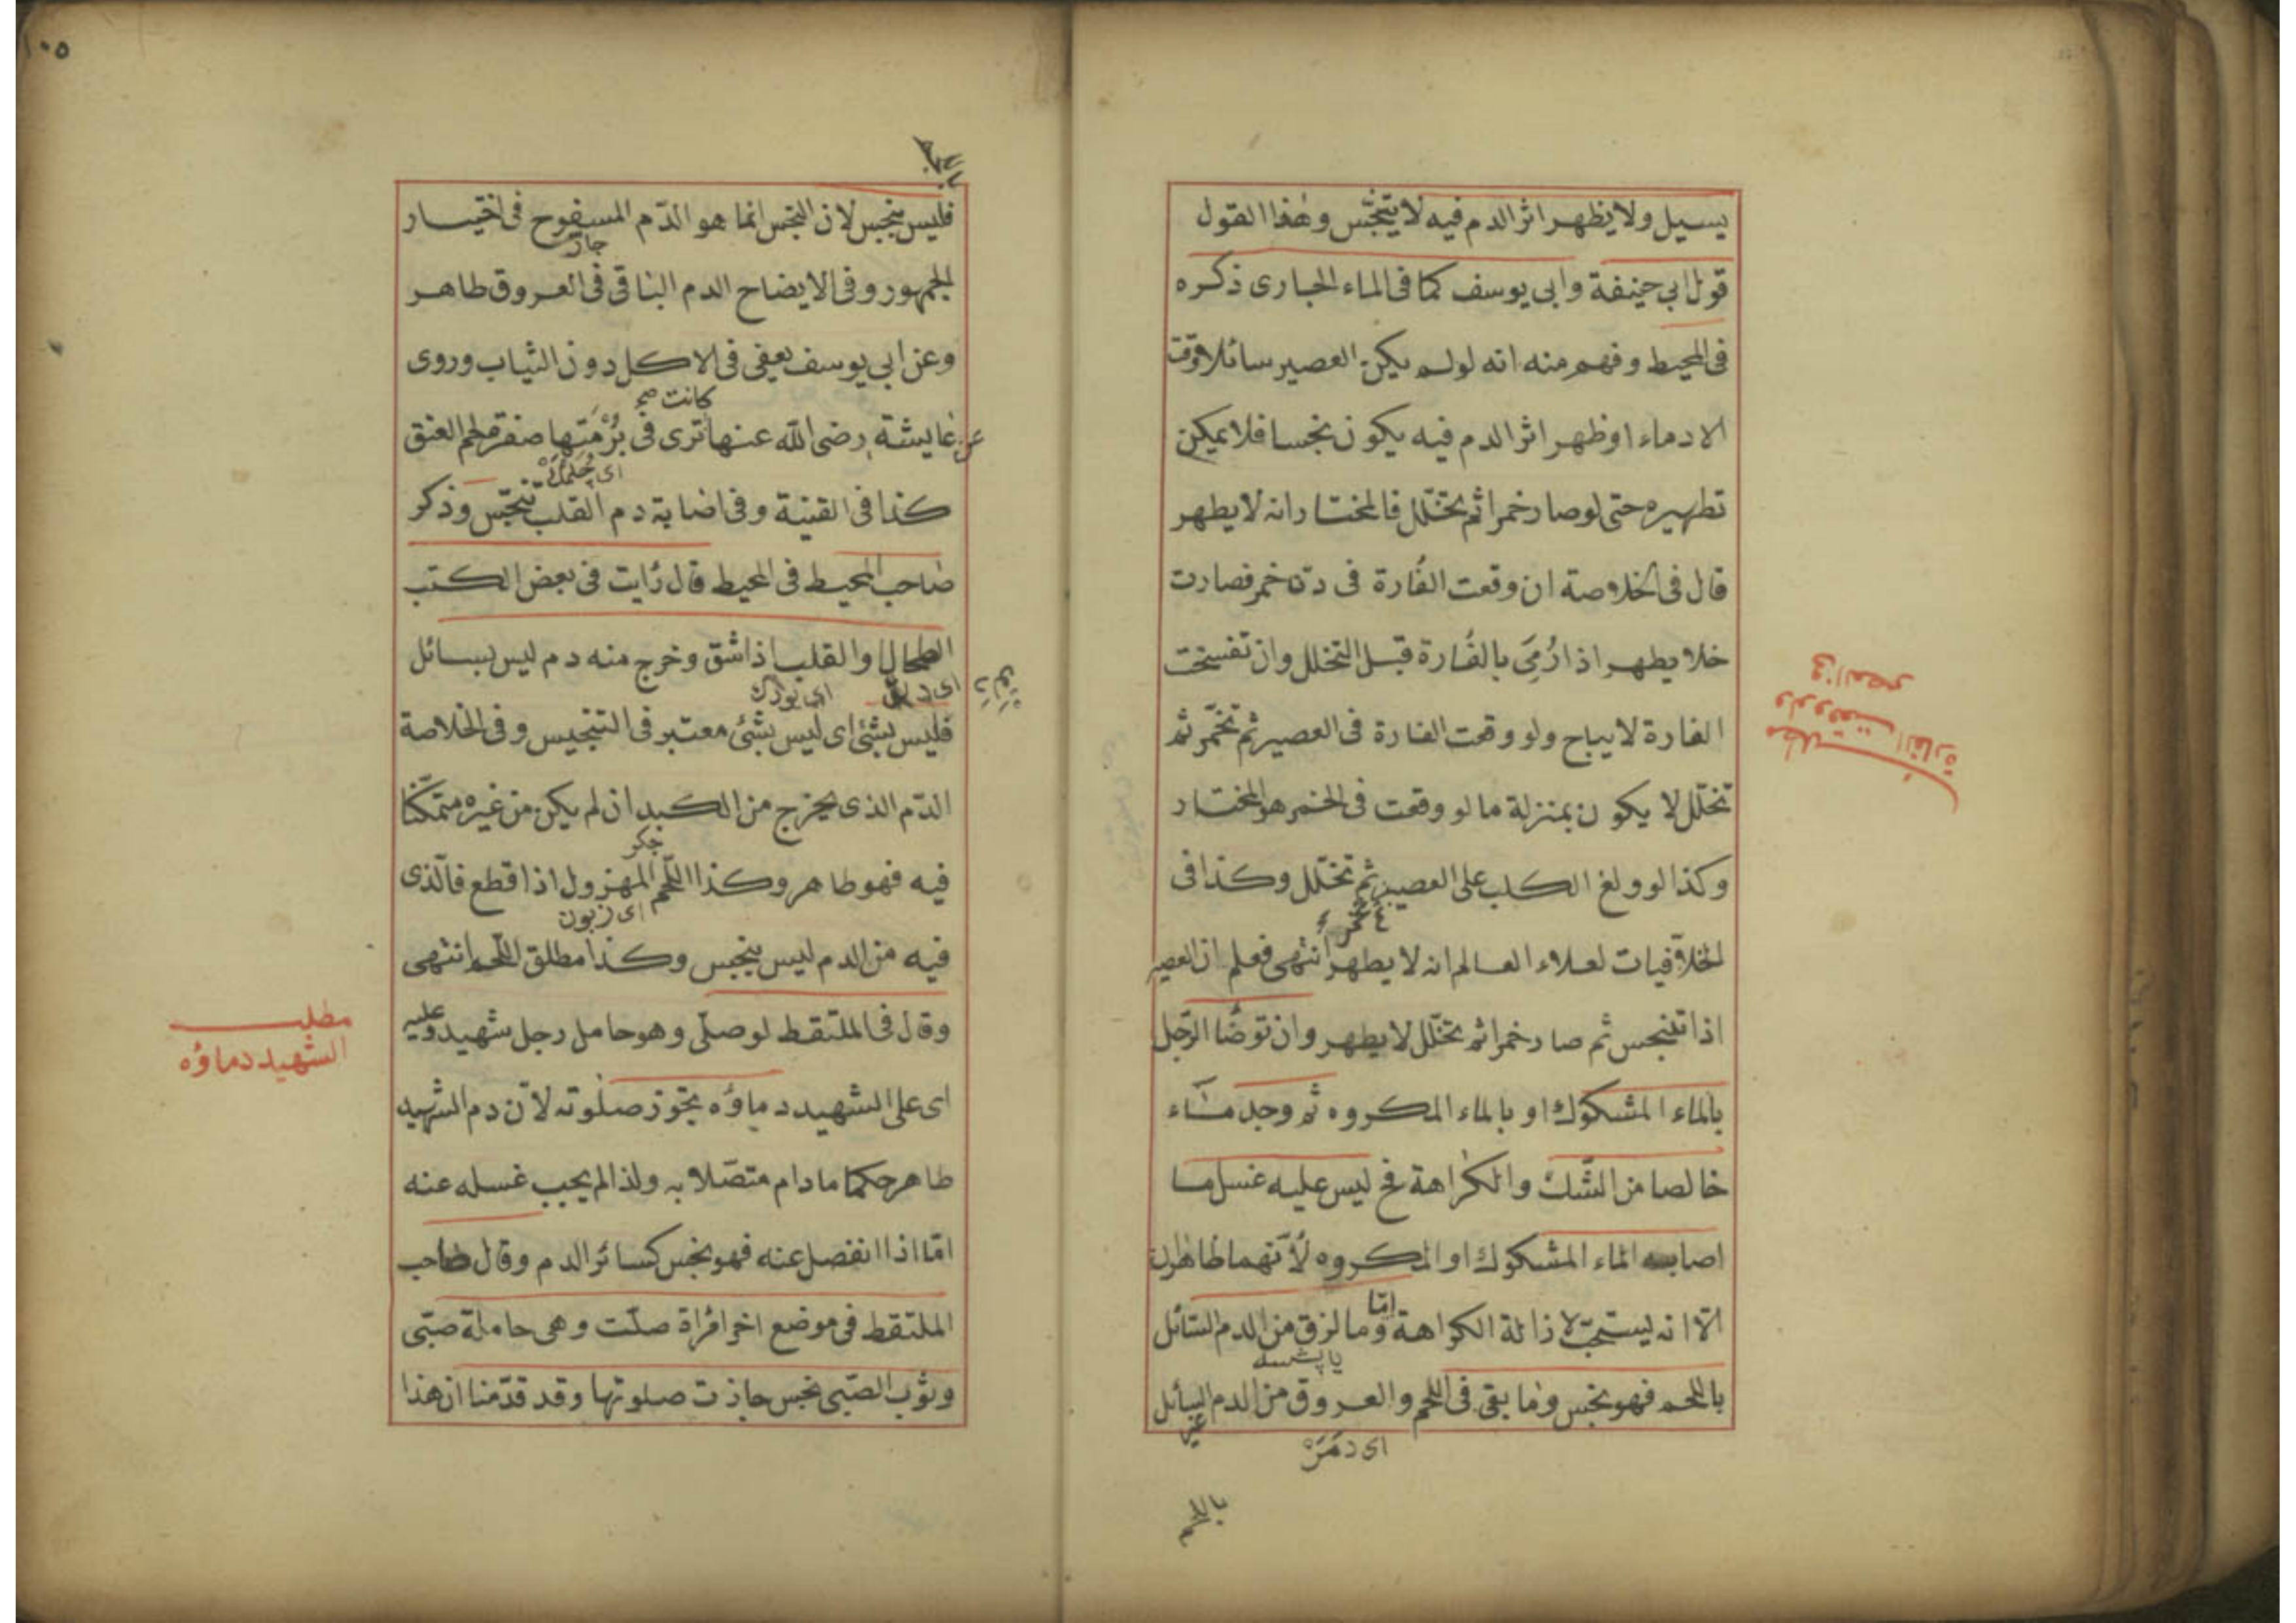 يسيل ولا يظهر اثر الدم فيه لا يتنجّس وهذا القول
قول ابي حنيفة وابى يوسف كما فى الماء الجارى ذكره
فى المحيط وفهم منه انه لو لم يكن العصير سائلا وقت
الادماء او ظهر اثر الدم فيه يكون نجسا فلا يمكن
تطهيره حتى لو صار خمرا ثم تخلّل فالمختار انه لا يطهر
قال فى الخلاصة ان وقعت الفارة فى دن خمر فصارت
خلا يطهر اذا رُمِىَ بالفارة قبل التخلل وان تفسخت
الفارة لا يباح ولو وقعت الفارة فى العصير ثم تخمّر ثم
تخلّل لا يكون بمنزلة ما لو وقعت فى الخمر هو المختار
وكذا لو ولغ الكلب على العصير ثم تخلّل وكذا فى
تخمر
الخلافيات لعلاء العالم انه لا يطهر انتهى فعلم ان العصير
اذا تنجس ثم صار خمرا ثم تخلّل لا يطهر وان توضّا الرّجل
بالماء المشكوك او بالماء المكروه ثم وجد ماء
خالصا من الشّك والكراهة فح ليس عليه غسل ما
اصابه الماء المشكوك او المكروه لانّهما طاهران
الّا انه يستحبّ لازالة الكراهة وما لزق من الدم السّائل
امّا
بالّلحم فهو نجس وما بقى فى اللحم والعروق من الدم السائل
غير
اى دمر
باللحم
مطلب
ولو وقعت الفارة
فى العصير
١٠٥
فليس بنجس لان النجس انما هو الدّم المسفوح فى اختيار
الجمهور وفى الايضاح الدم الباقى فى العروق طاهر
وعن ابي يوسف يعفى فى الاكل دون الثياب وروى
كانت صح
عن عايشة رضى اللّه عنها ترى فى بُرْمَتها صفرة لحم العنق
اى چلمك
كذا فى القنية وفى اضاية دم القلب تنجّس وذكر
صاحب المحيط فى المحيط قال رايت فى بعض الكتب
الطحال والقلب اذا شق وخرج منه دم ليس بسائل
فليس بشئ اى ليس بشئ معتبر فى التنجيس وفى الخلاصة
الدّم الذى يخرج من الكبد ان لم يكن من غيره متمكّنا
جكر
فيه فهو طاهر وكذا اللّحم المهزول اذا قطع فالّذى
اى زبون
فيه من الدم ليس بنجس وكذا مطلق اللّحم انتهى
وقال فى الملتقط لو صلّى وهو حامل رجل شهيد وعليه
اى على الشهيد دماؤه تجوز صلوته لانّ دم الشهيد
طاهر حكما ما دام متصّلا به ولذا لم يجب غسله عنه
امّا اذا انفصل عنه فهو نجس كسائر الدم وقال صاحب
الملتقط فى موضع اخر امرأة صلّت وهى حاملة صبّى
وثوب الصّبى نجس جازت صلوتها وقد قدّمنا ان هذا
مطلب
الشهيد دماؤه